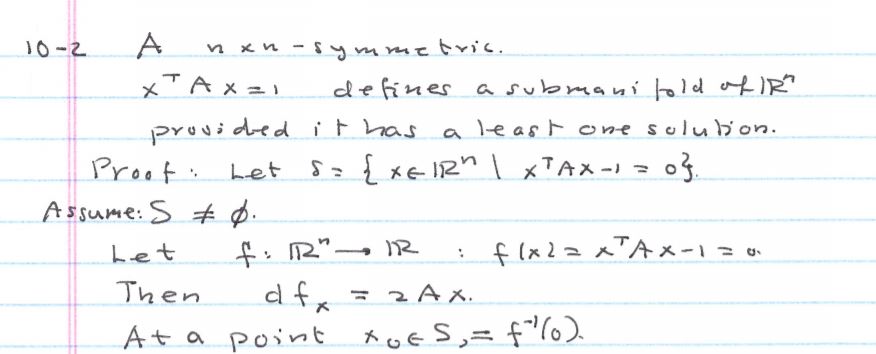 10-2 A n×n - symmetric.
xᵀAx=1 defines a submanifold of ℝⁿ
provided it has a least one solution.
Proof: Let S = { x∈ℝⁿ | xᵀAx-1 = 0}.
Assume: S ≠ ∅.
Let f: ℝⁿ → ℝ : f(x) = xᵀAx-1 = 0.
Then dfₓ = 2Ax.
At a point x₀∈S, = f⁻¹(0).